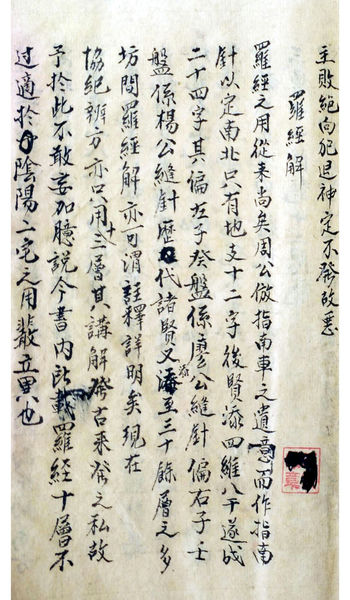 主敗絕向犯退神定不發故忌
羅經解
羅經之用從來尚矣周公倣指南車之遺意而作指南
針以定南北只有地支十二字後賢添四維八干遂成
二十四字其偏左子癸盤係廖公縫針偏右子壬
盤係楊公縫針歷代諸賢又添至三十餘層之多
坊間羅經解亦可謂註釋詳明矣現在
協紀辨方亦只用十三層其講解發古來發之私故
予於此不敢妄加臆說今書內所載羅經十層不
过適於陰陽二宅之用立異也